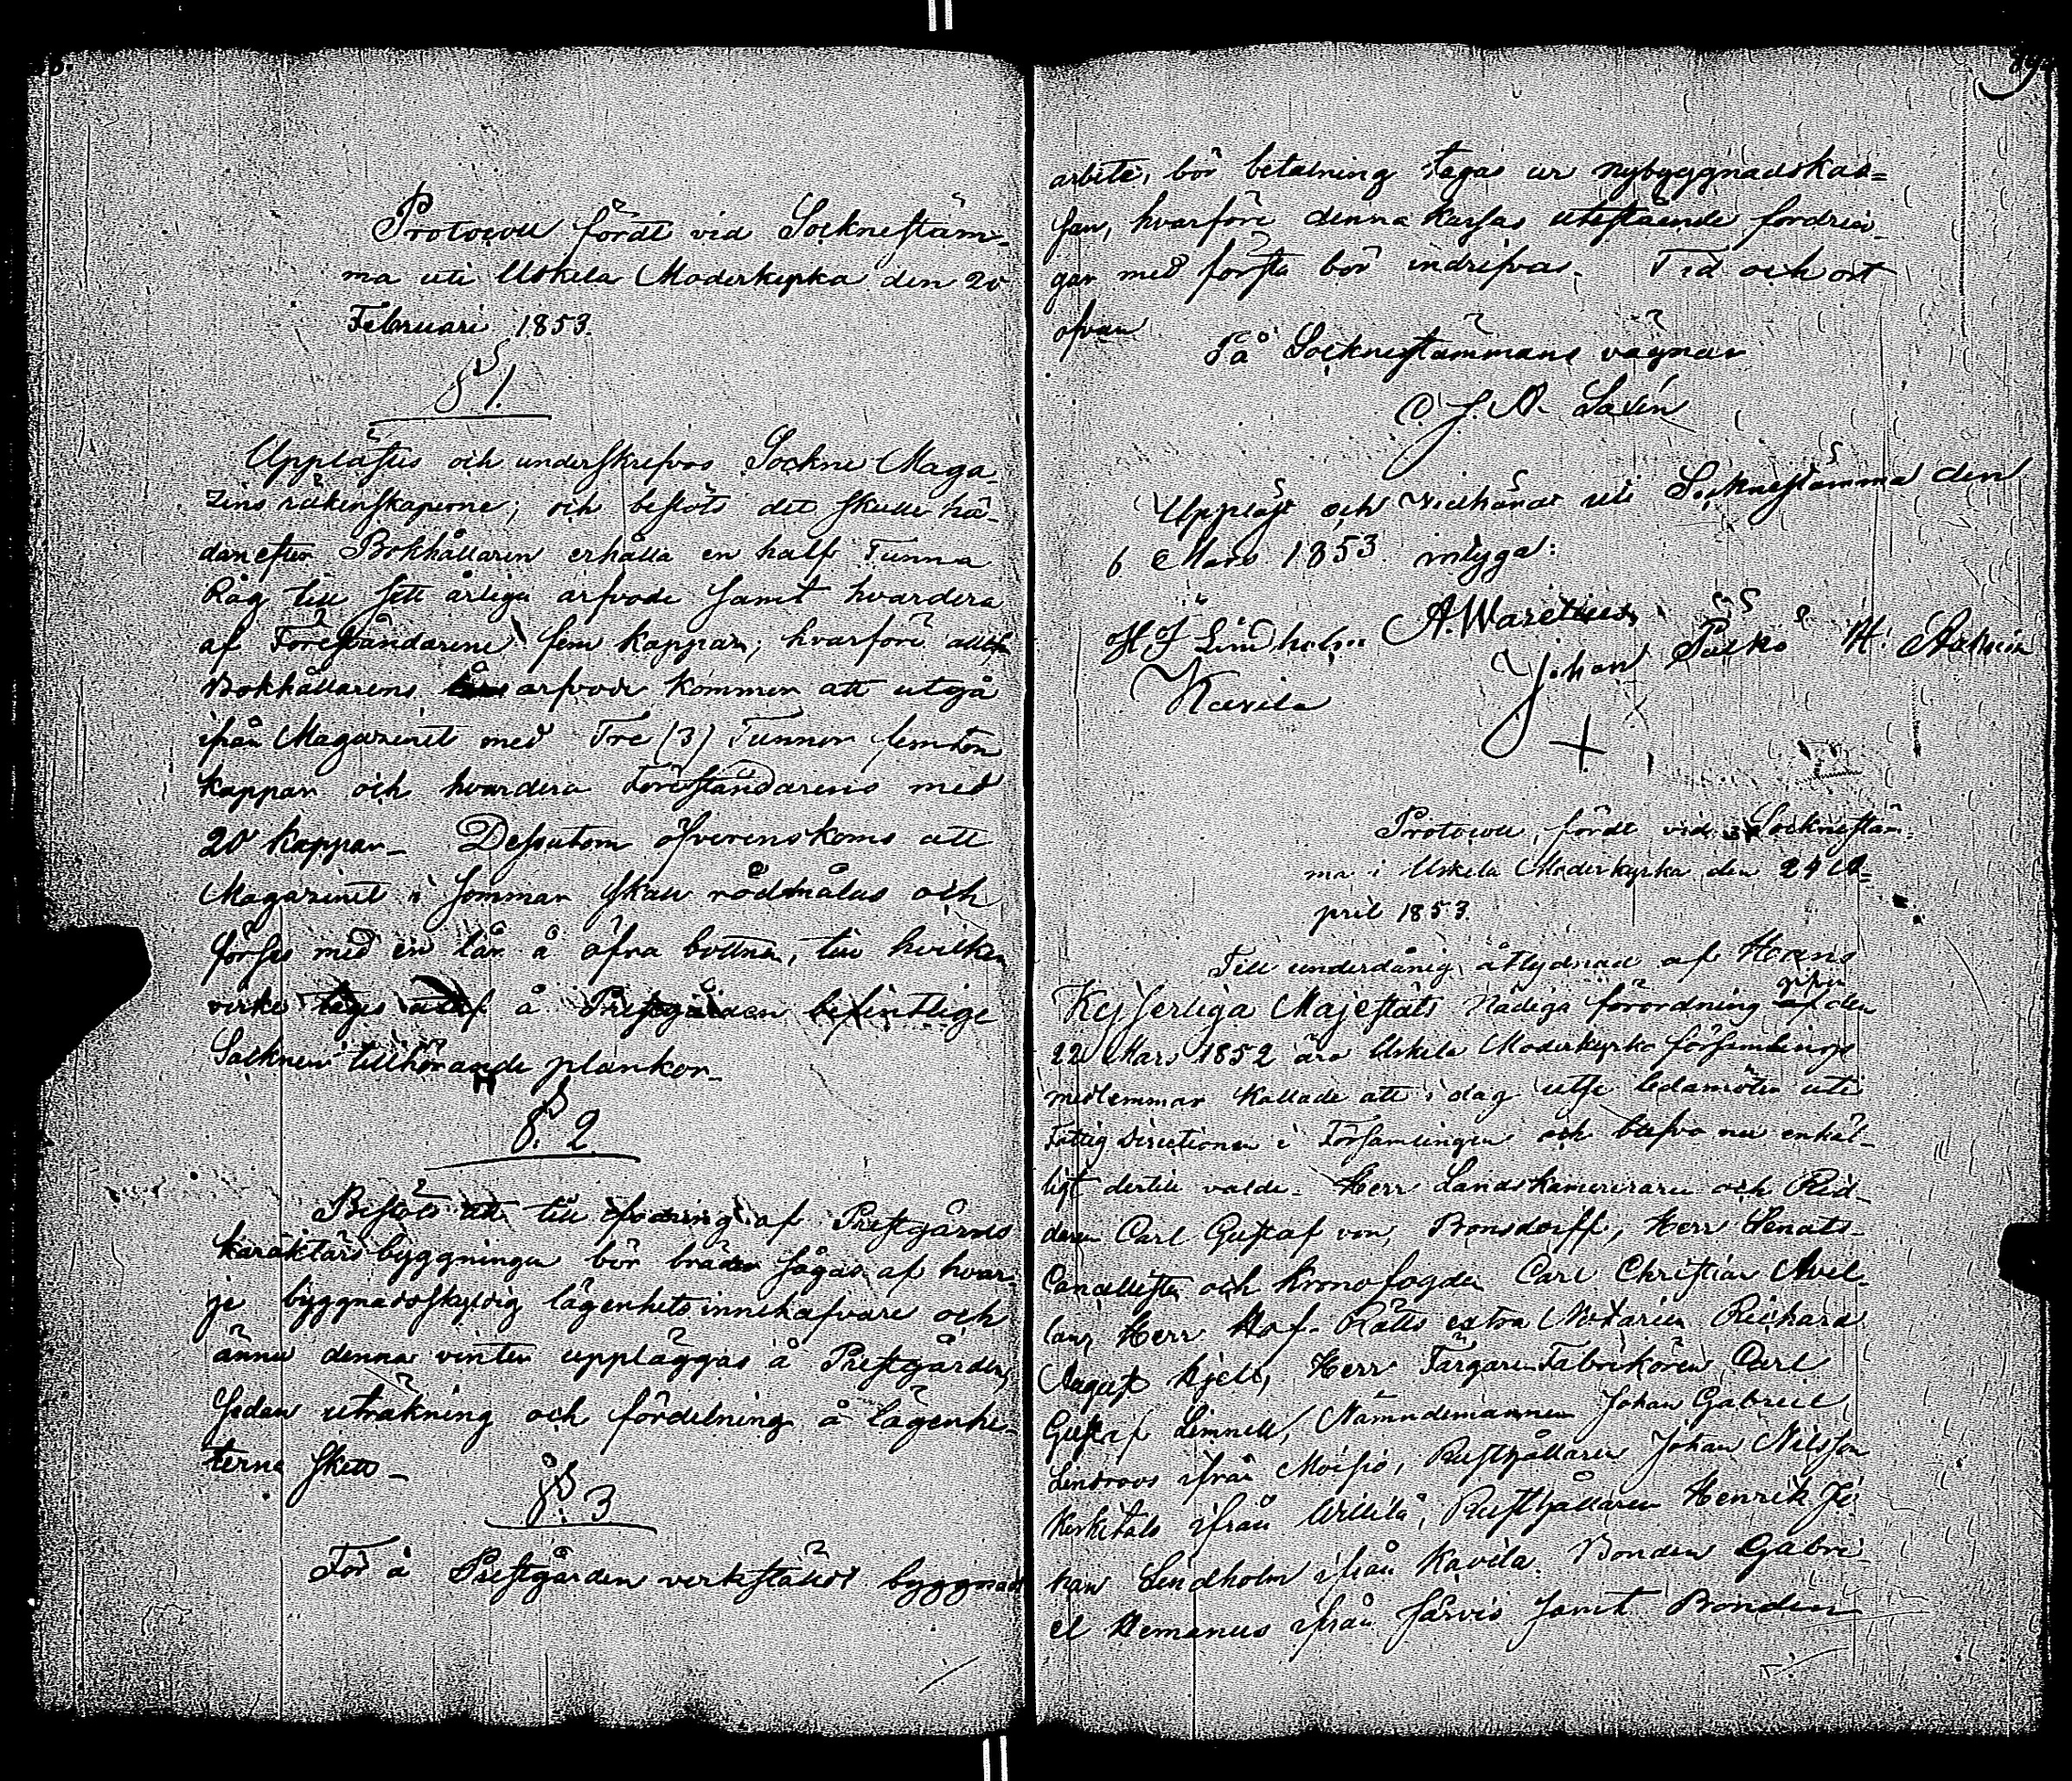 Protocoll fördt vid Sockneståm-
ma uti Uskela Moderkyrka den 20
Februari 1853.
§ 1.
Upplästes och underskrefvos Sockne Maga-
zins räkenskaperne; och beslöts det skulle hä-
danefter Bokhållaren erhålla en half Tunna
Råg till sitt årliga arfvode samt hvardera
af Föreståndarene fem kappar; hvarföre alltså
Bokhållarens arfvode kommer att utgå
ifrån Magazinet med Tre (3) Tunnor femton
kappar och hvardera Föreståndarens med
20 kappar_ Dessutom öfverenskoms att
Magazinet i sommar skall rödmålas och
förses med en lår å öfra bottnen, till hvilken
virke tages å Prestgården befintlige
Socknen tillhörande plankor_
§. 2.
Beslöts att till fodring af Prestgårds
karaktärsbyggningen bör bräder sågas af hvar-
je byggnadsskyldig lägenhets innehafvare och
ännu denna vinter uppläggas å Prestgården,
sedan uträkning och fördelning å lägenhe-
terne skett_
§. 3
För å Prestgården verkställdt byggnads
arbete, bör betalning tagas ur nybyggnadskas=
san, hvarföre denna kassas utestående fordrin-
gar med första bör indrifvas. Tid och ort
ofvan
På Socknestämmans vägnar
C. J. A. Saxén
Uppläst och vidhändt uti Socknestämma den
6 Mars 1853 intyga:
H J Lindholm A. Warelius Johan Palko H.
Kavila
Protocoll, fördt vid Socknestäm-
ma i Uskela Moderkyrka den 24 A-
pril 1853.
Till underdånig åtlydnad af Hans
Kejserliga Majestäts Nådiga förordning af den
22 Mars 1852 äro Uskela Moderkyrko församlings
medlemmar kallade att i dag utse ledamöter uti
Fattig Directionen i Församlingen och blefvo nu enhäl-
ligt dertill valde. Herr Landskamereraren och Rid-
daren Carl Gustaf von Bonsdorff, Herr Senats-
Cancellisten och Kronofogden Carl Christian Avel-
lan, Herr Hof-Rätts extra Notarien Richard
August Hjelt, Herr Färgaren Fabrikören Carl
Gustaf Linnell, Nämndemannen Johan Gabriel
Lindroos ifrån Moisio, Rusthållaren Johan Nilsson
Keskitalo ifrån Uskila, Rusthållaren Henrik Jo-
han Lindholm ifrån Kavila. Bonden Gabri-
el Hemanus ifrån Järvis samt Bonden